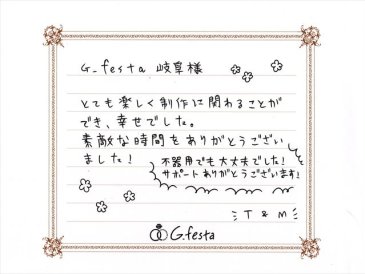 G_festa 岐阜様
とても楽しく制作に関わることが
でき、幸せでした。
素敵な時間をありがとうござい
ました!
不器用でも大丈夫でした!
サポートありがとうございます!
T & M
G.festa